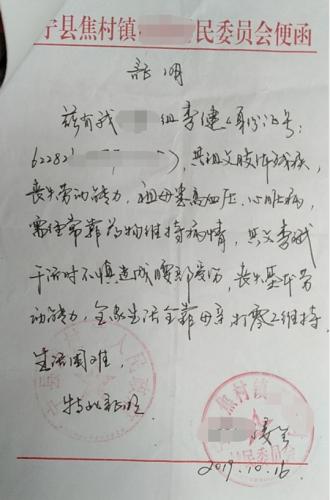 宁县焦村镇 民委员会便函
证明
兹有我 组李健(身份证号:
62282 ), 其祖父肢体残疾,
丧失劳动能力, 祖母患高血压、心脏病,
需经常靠药物维持病情, 其父李斌
干活时不慎造成腰部受伤, 丧失基本劳
动能力, 全家生活全靠母亲打零工维持,
生活困难,
特此证明
焦村镇
民委员会
2019.10.16